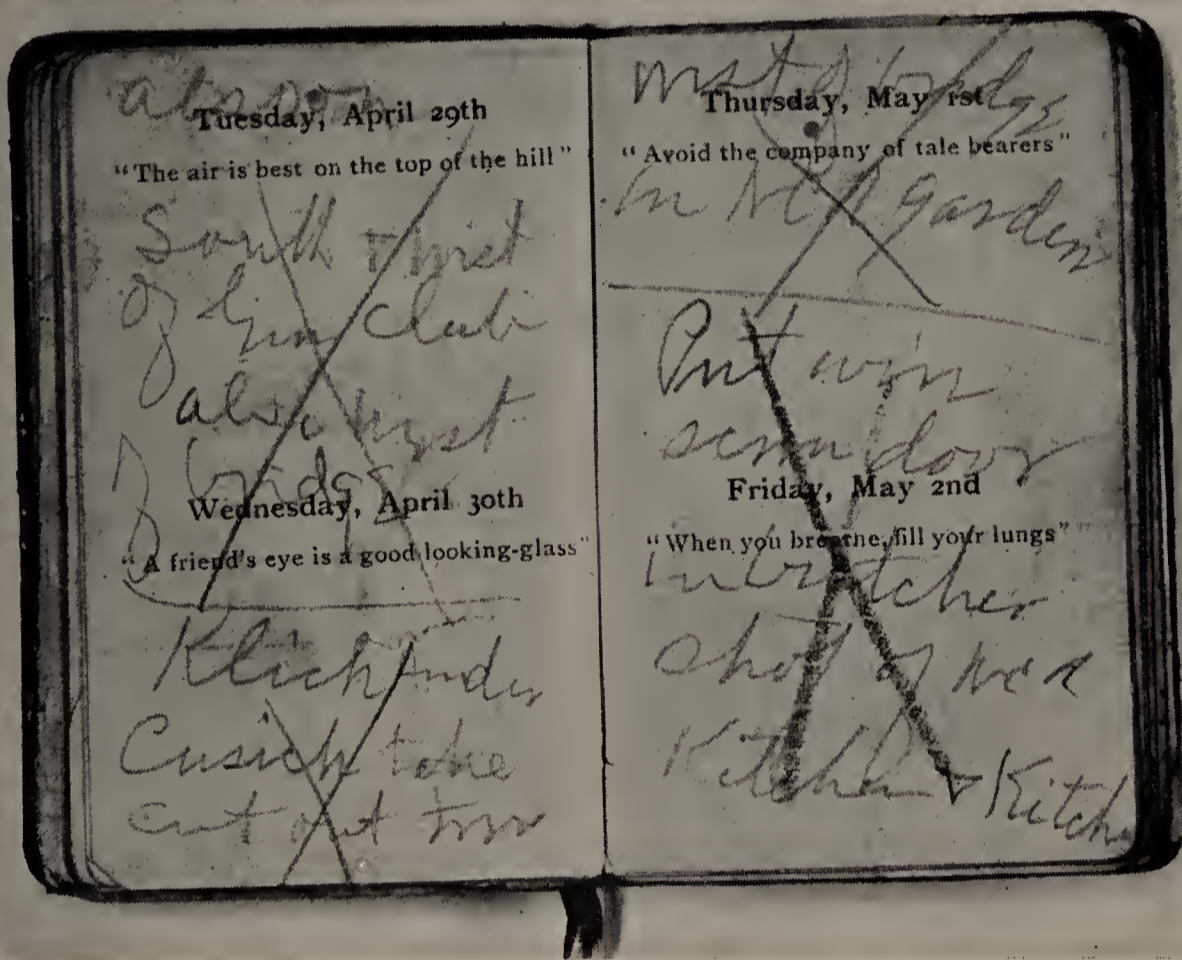 also on
Tuesday, April 29th
“The air is best on the top of the hill”
South + West
of Gun Club
also west
of bridge
Wednesday, April 30th
“A friend's eye is a good looking-glass”
Cusick take
cut out
west of bridge
Thursday, May 1st
“Avoid the company of tale bearers”
in garden
Put win
door
Friday, May 2nd
“When you breathe, fill your lungs”
in butcher
shop of
Kitchen + Kitch